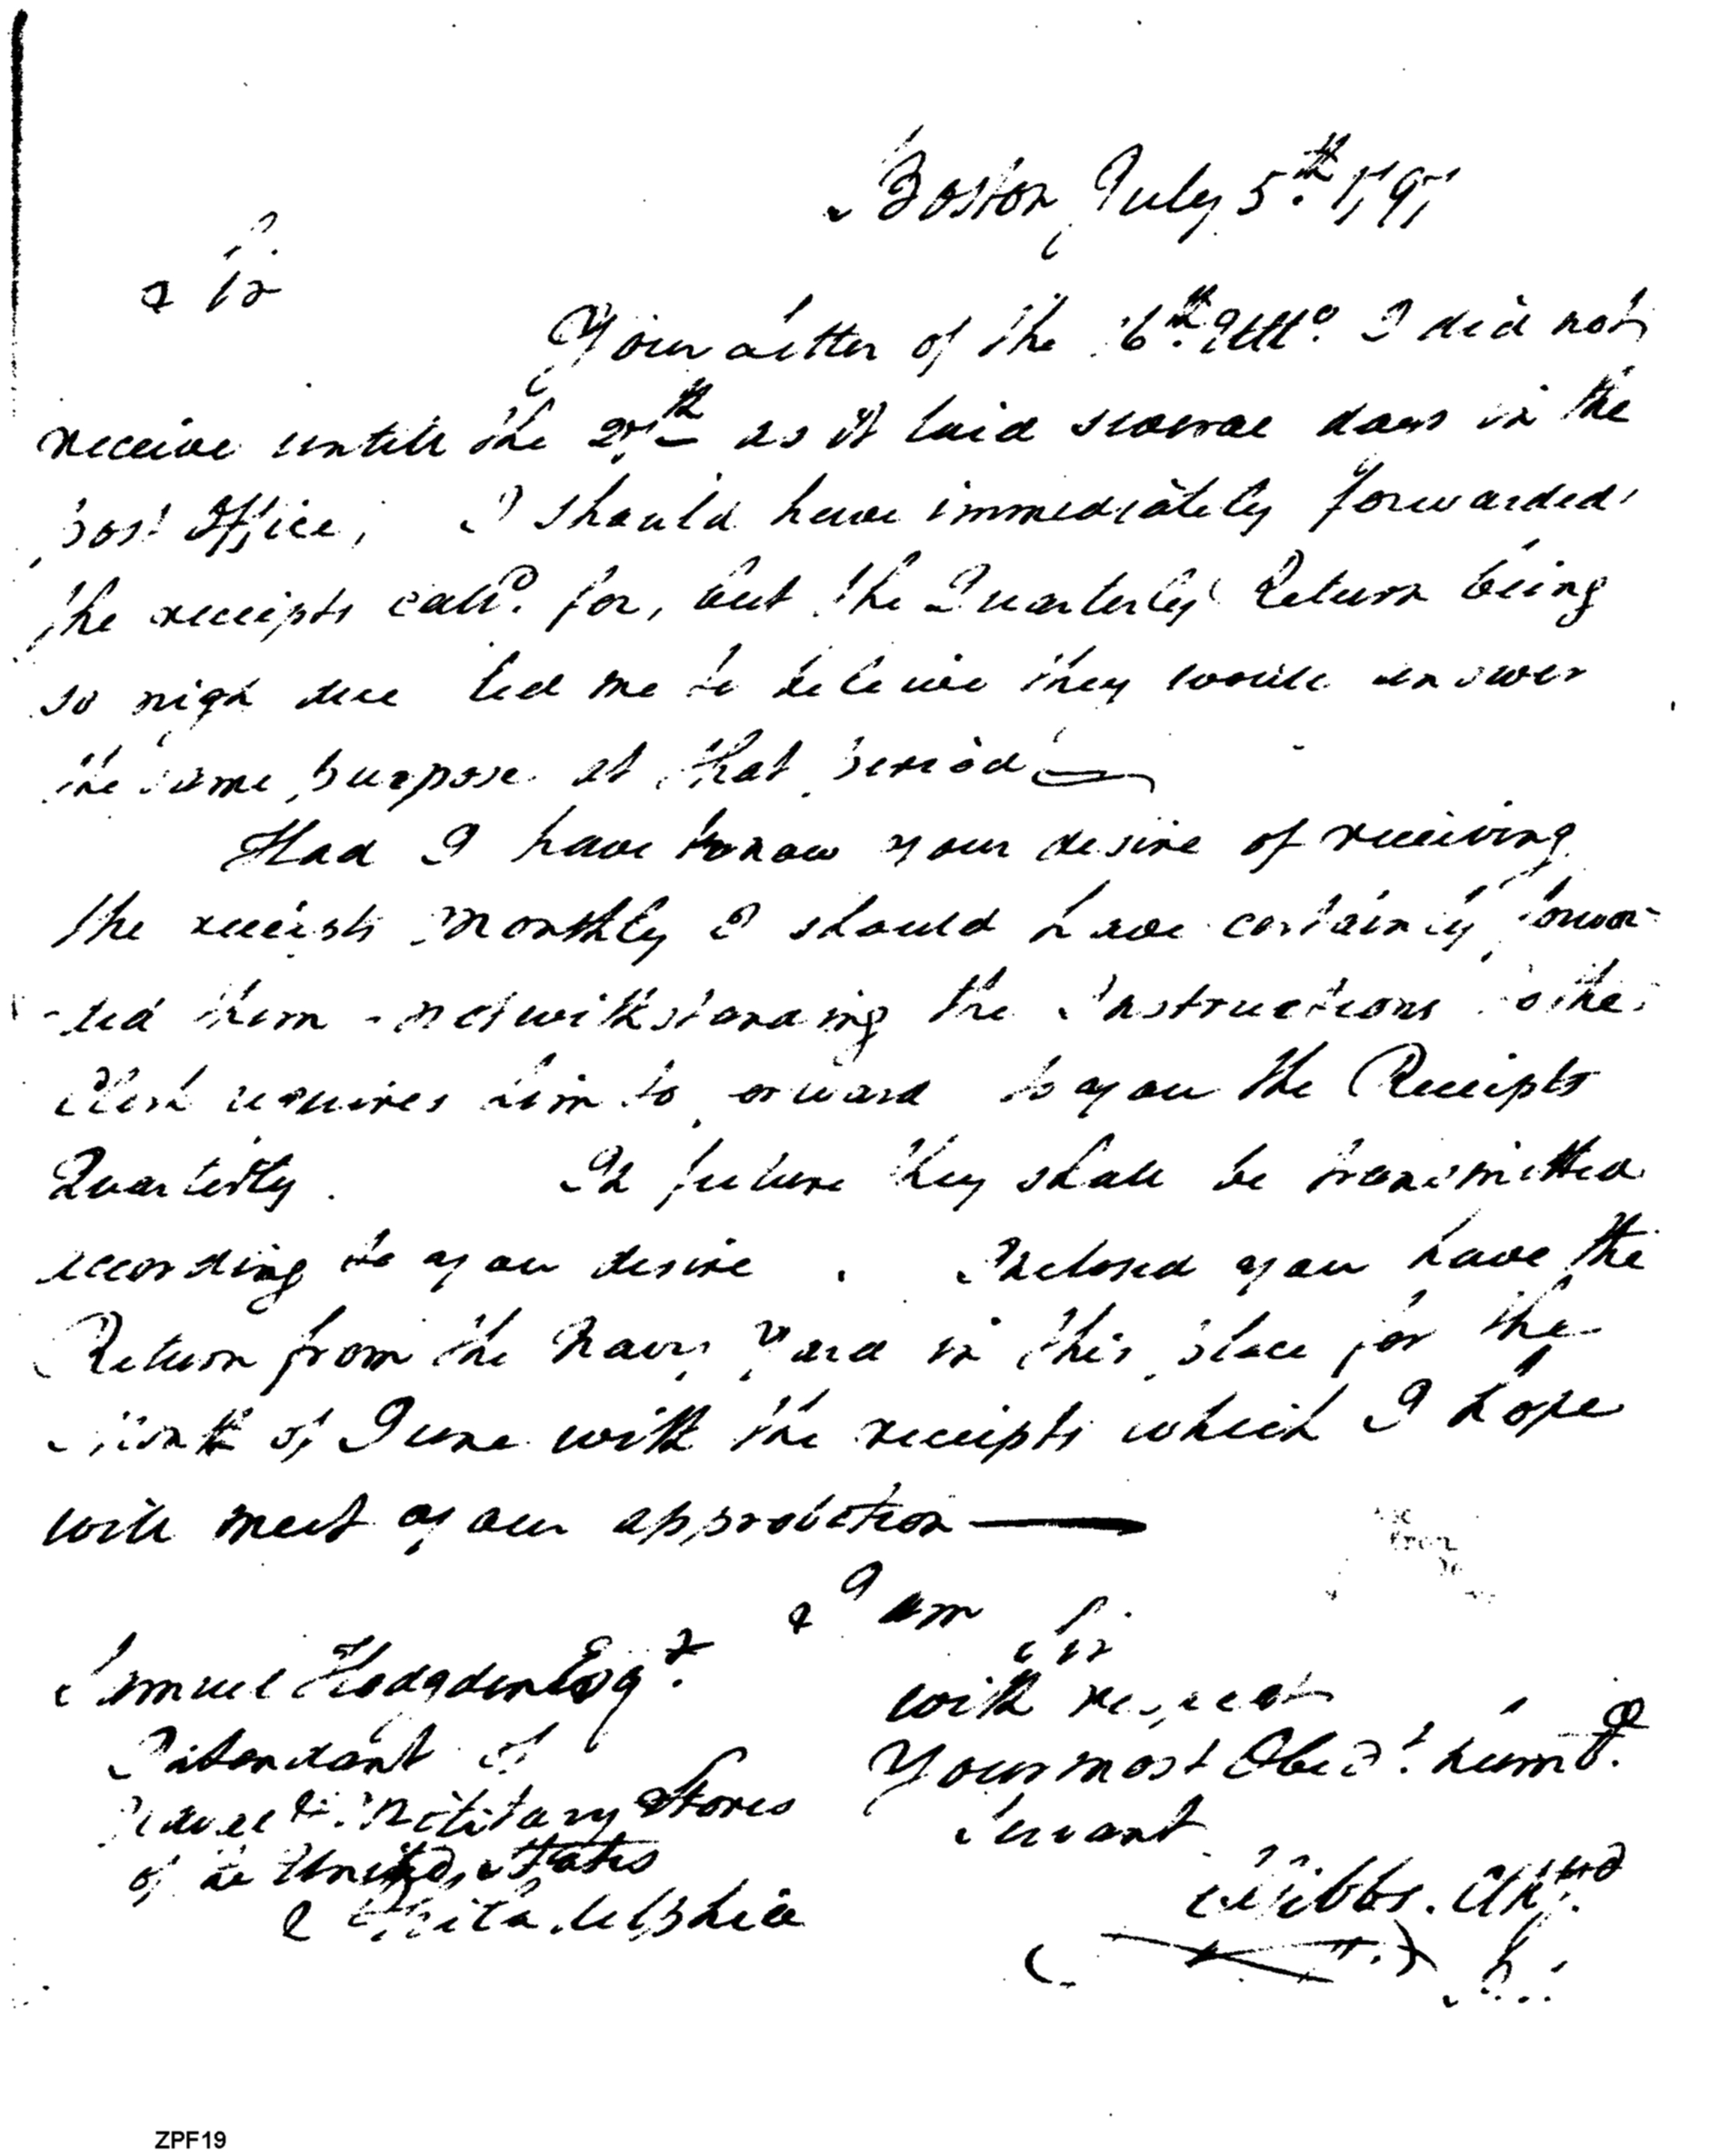 Boston July 5th 1797
Sir
Your Letter of the 16th Ulto. I did not
receive untill the 27th as it laid several days in the
Post Office, I should have immediately forwarded
the receipts calld. for, but the Quarterly Return being
so nigh due led me to beleive they would answer
the same purpose at that period
Had I have know your desire of receiving
the receipts Monthly I should have certainly forwar-
-ded them - notwithstanding the Instructions to the
Clerk requires him to forward to you the Receipts
Quarterly. In future they shall be transmitted
according to your desire. Inclosed you have the
Return from the Navy Yard in this place for the
Month of June with the receipts which I hope
will meet your approbation
I am
Sir
with respect
Your most Obedt. humb.
Servant
Gibbs. Agt.
Samuel Hodgdon Esqr.
Intendant of
Naval & Military Stores
of the United States
Philadelphia
ZPF19